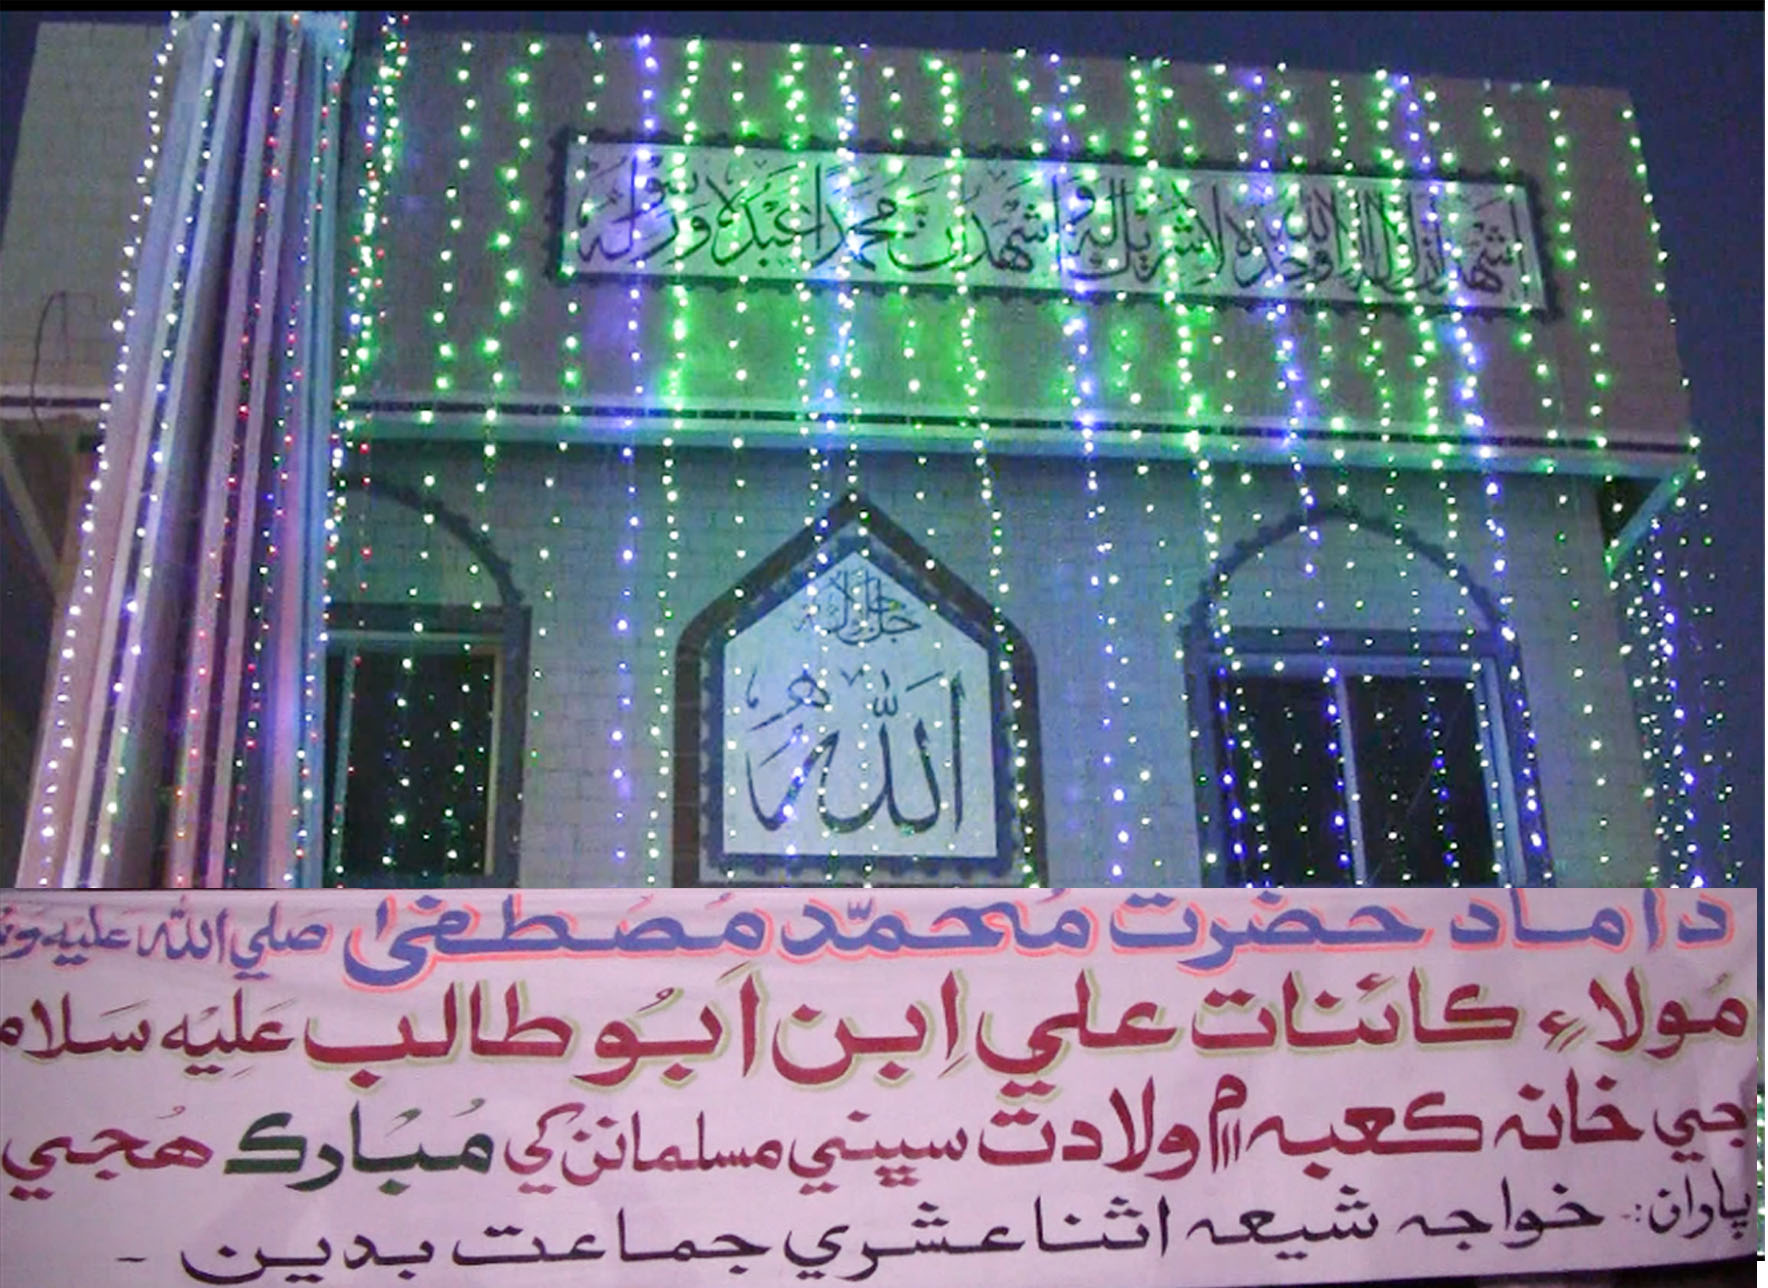 اشهد ان لا اله الا الله وحده لا شريك له و اشهد ان محمدا عبده و رسوله
جل جلاله
الله
داماد حضرت مُحمّد مُصطفیٰ صلي الله عليه
مُولاءِ ڪائنات علي اِبن اَبُو طالب عَلِيْه سَلام
جي خانہ ڪعبہ ۾ ولادت سڀني مسلمانن کي مُبارڪ هُجي
پاران:- خواجہ شيعہ اثنا عشري جماعت بدين -